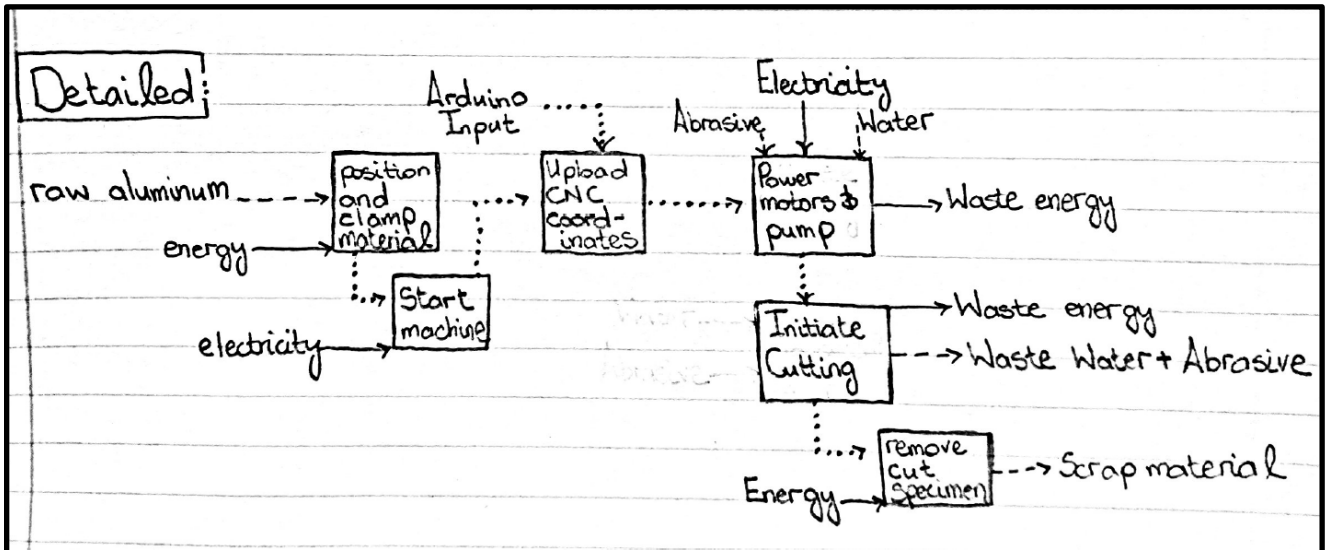 Detailed
Arduino
Input
Electricity
Abrasive
Water
raw aluminum
position
and
clamp
material
energy
Upload
CNC
coord-
inates
Power
motors &
pump
Waste energy
Start
machine
electricity
Initiate
Cutting
Waste energy
Waste Water + Abrasive
remove
cut
specimen
Energy
Scrap material